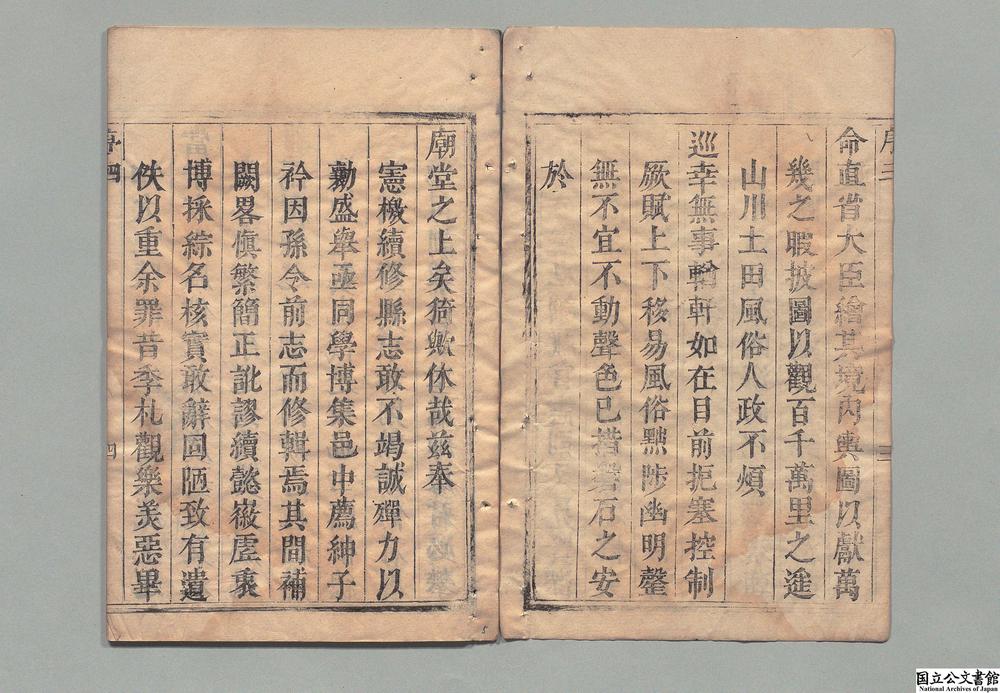 序三
命直省大臣繪其境內輿圖以獻萬
幾之暇披圖以觀百千萬里之遙
山川土田風俗人政不煩
巡幸無事輪軒如在目前扼塞控制
厥賦上下移易風俗黜陟幽明罄
無不宜不動聲色已措磐石之安
於
三
廟堂之上矣猗歟休哉茲奉
憲檄續修縣志敢不竭誠殫力以
勷盛舉亟同學博集邑中薦紳子
衿因孫令前志而修輯焉其間補
闕畧傎繁簡正訛謬續懿徽虛衷
博採綜名核實敢辭固陋致有遺
佚以重余罪昔季札觀樂美惡畢
序四
四
国立公文書館
National Archives of Japan